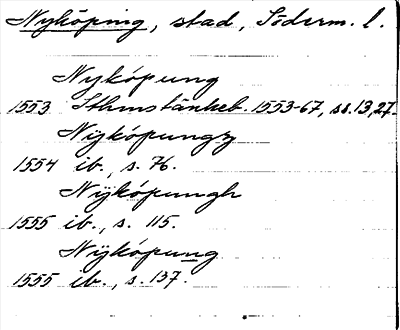 Nyköping, stad, Söderm. l.
Nykópung
1553 Sthmstänkeb. 1553-67, ss. 13, 27.
Nÿkópungz
1554 ib., s. 76.
Nÿkópungh
1555 ib., s. 115.
Nÿkópung
1555 ib., s. 137.